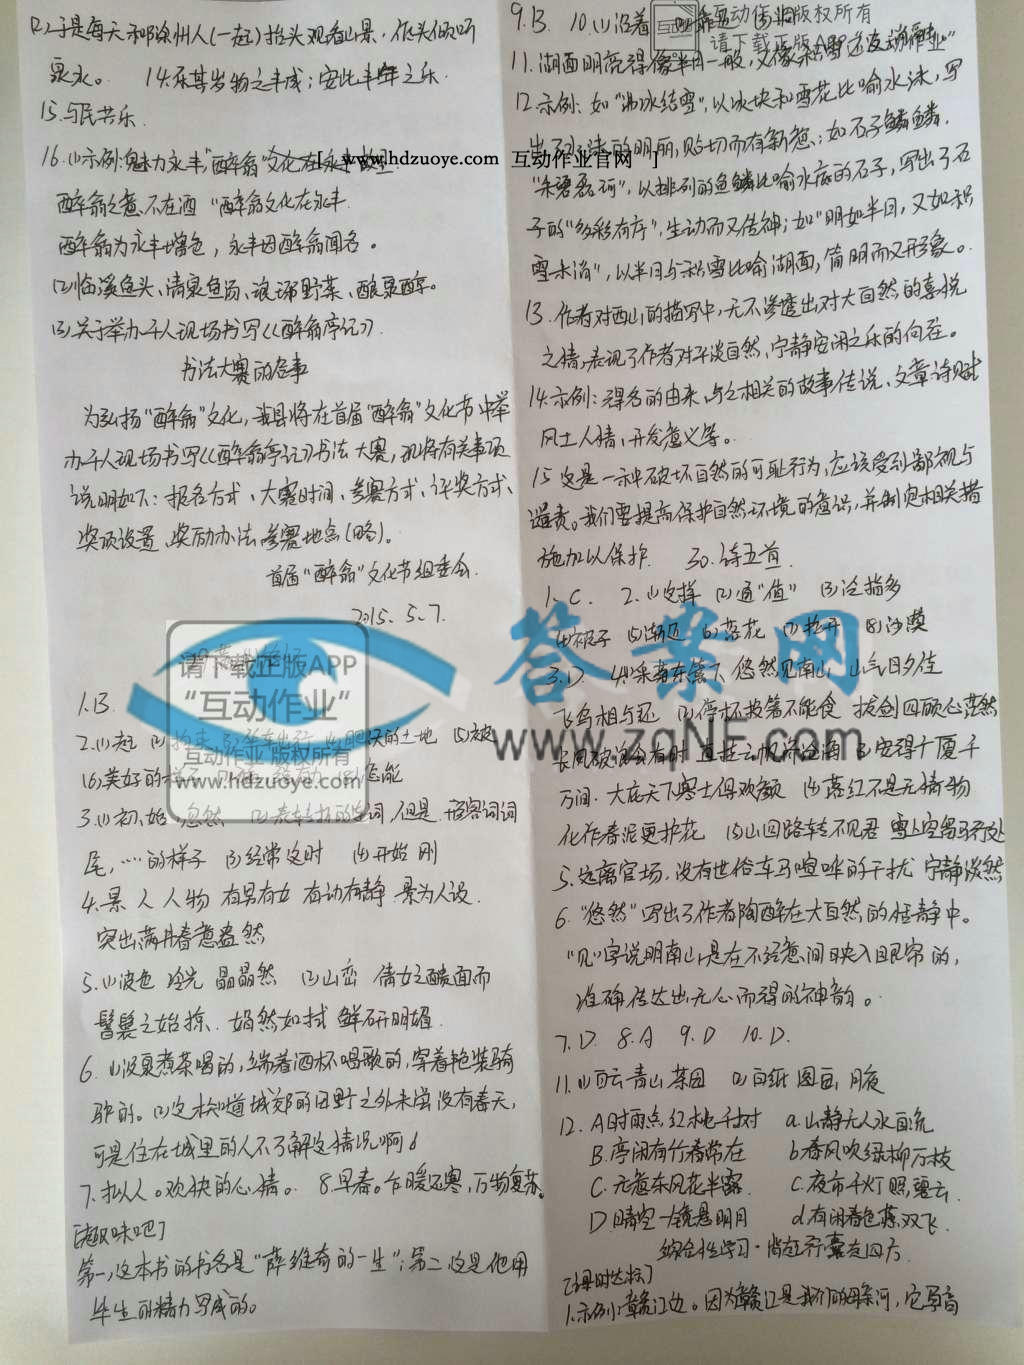 (2)于是每天和滁州人(一起)抬头观看山景,低头倾听
泉水。 14.乐其岁物之丰成;安此丰年之乐.
15.与民共乐.
16.(1)示例:魅力永丰,"醉翁"文化在永丰
[ www.hdzuoye.com 互动作业官网 ]
醉翁之意不在酒 "醉翁文化在永丰
醉翁为永丰增色,永丰因醉翁闻名。
(2)临溪鱼头、清泉鱼汤、琅琊野菜、酿泉酒.
(3)关于举办千人现场书写《醉翁亭记》
书法大赛的启事
为弘扬"醉翁"文化,我县将在首届"醉翁"文化节中举
办千人现场书写《醉翁亭记》书法大赛,现将有关事项
说明如下:报名方式、大赛时间、参赛方式、评奖方式、
奖项设置、奖励办法、参赛地点(略)。
首届"醉翁"文化节组委会.
2015.5.7.
请下载正版APP
"互动作业"
互动作业 版权所有
www.hdzuoye.com
1.B
2.(1)
的土地 (5)被
(6)美好的样子
3.(1)初、始 忽然 词,但是 形容词词
尾,……的样子 (3)经常 这时 (4)开始 刚
4.景 人 人物 有男有女 有动有静 景为人设.
突出满井春意盎然
5.(1)波色 泠光 晶晶然 (2)山峦 倩女之靧面而
髻鬟之始掠. 娟然如拭 鲜妍明媚.
6.(1)汲泉煮茶喝的,端着酒杯唱歌的,穿着艳装骑
驴的。(2)这才知道城郊的田野之外未尝没有春天,
可是住在城里的人不了解这情况啊!
7.拟人。欢快的心情。 8.早春。乍暖还寒,万物复苏。
[趣味吧]
第一,这本书的书名是"薛维奇的一生";第二,这是他用
毕生的精力写成的。
9.B 10.(1)沿着
互动作业 版权所有
请下载正版APP "互动作业"
11.湖面明亮得像半月一般,又像积雪
12.示例:如"沸冰结雪",以冰块和雪花比喻水沫,写
出了水沫的明丽,贴切而有新意;如石子鳞鳞.
"朱碧磊砢",以排列的鱼鳞比喻水底的石子,写出了石
子的"多彩有序",生动而又传神;如"明如半月,又如积
雪未消",以半月与积雪比喻湖面,简明而又形象。
13.作者对西山的描写中,无不渗透出对大自然的喜悦
之情,表现了作者对平淡自然,宁静安闲之乐的向往。
14.示例:得名的由来、与之相关的故事传说、文章诗
风土人情、开发意义等。
15.这是一种破坏自然的可耻行为,应该受到鄙视与
谴责。我们要提高保护自然环境的意识,并制定相关措
施加以保护. 30.诗五首
1.C. 2.(1) (2)通"值" (3)泛指多
(4)被子 (5)渐近 (6)落花 (7)拉开 (8)沙漠
3.D 4.(1)采菊东篱下 悠然见南山 山气日夕佳
飞鸟相与还 (2)停杯投箸不能食 拔剑四顾心茫然
长风破浪会有时 直挂云帆济沧海 (3)安得广厦千
万间.大庇天下寒士俱欢颜 (4)落红不是无情物
化作春泥更护花 (5)山回路转不见君 雪上空留马行处
5.远离官场,没有世俗车马喧哗的干扰 宁静淡然
6."悠然"写出了作者陶醉在大自然的恬静中。
"见"字说明南山是在不经意间映入眼帘的,
准确传达出无心而得的神韵。
7.D. 8.A 9.D 10.D.
11.(1)白云 青山 茶园 (2)白纸 图画 月夜
12.A时雨点红桃千树 a.山静无人水自流
B.亭闲有竹春常在 b春风吹绿柳万枝
C.无意东风花半露 C.夜市千灯照碧云.
D晴空一镜悬明月 d.有闲春色燕双飞.
综合性学习·背起行囊走四方
[课时达标]
1.示例:赣江边。因为赣江是我们的母亲河,它
答案网
www.zqNF.com